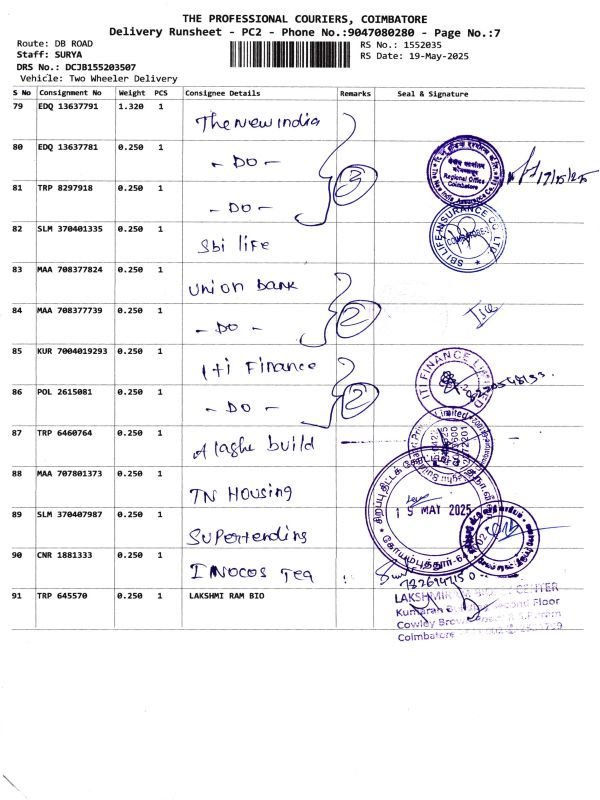 THE PROFESSIONAL COURIERS, COIMBATORE
Delivery Runsheet - PC2 - Phone No.:9047080280 - Page No.:7
Route: DB ROAD
Staff: SURYA
DRS No.: DCJB155203507
Vehicle: Two Wheeler Delivery
RS No.: 1552035
RS Date: 19-May-2025
S No Consignment No Weight PCS Consignee Details Remarks Seal & Signature
79 EDQ 13637791 1.320 1 The New India
80 EDQ 13637781 0.250 1 - DO -
81 TRP 8297918 0.250 1 - DO - 3
Regional Office
Coimbatore
82 SLM 370401335 0.250 1 Sbi life
SBI LIFE INSURANCE CO. LTD.
COIMBATORE-2
83 MAA 708377824 0.250 1 union bank
84 MAA 708377739 0.250 1 - DO - 2
85 KUR 7004019293 0.250 1 iti Finance
ITI FINANCE LIMITED
86 POL 2615081 0.250 1 - DO - 2
87 TRP 6460764 0.250 1 build
88 MAA 707801373 0.250 1 TN Housing
89 SLM 370407987 0.250 1 Supertending
19 MAY 2025
90 CNR 1881333 0.250 1 Tea
91 TRP 645570 0.250 1 LAKSHMI RAM BIO
CENTER
Kumaran Second Floor
Cowley Brown
Coimbatore